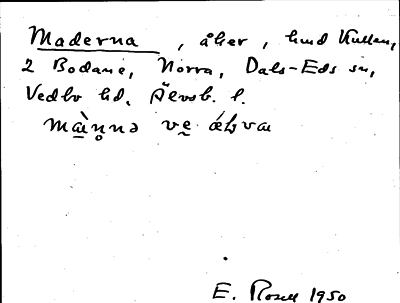 Maderna, åker, hmd Kullen,
2 Bodane, Norra, Dals-Eds sn,
Vedbo hd, Älvsb. l.
E. Rosell 1950